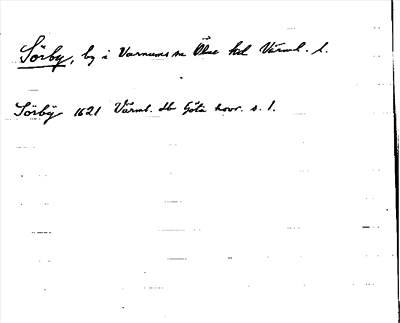 Sörby, by i Varnums sn Ölse hd Värml. l.
Sörby 1621 Värml. db Göta hovr. s. 1.